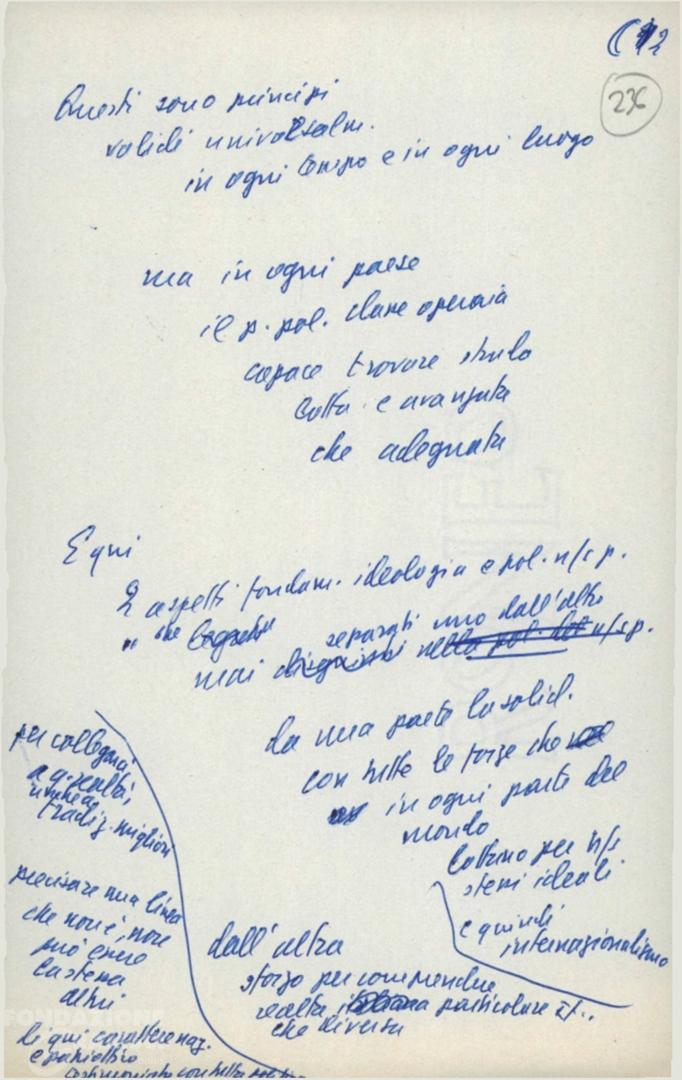 236
Questi sono principi
validi universalm.
in ogni tempo e in ogni luogo
ma in ogni paese
il p. pol. classe operaia
capace trovare strada
lotta e avanzata
che adeguata
E qui
2 aspetti fondam. ideologia e pol. n/s p.
separati uno dall'altro
mai disgiunti nella pol. del n/s p.
da una parte la solid.
con tutte le forze che
in ogni parte del
mondo
lottano per n/s
stessi ideali
e quindi
internazionalismo
dall'altra
sforzo per comprendere
realtà particolare
che diversa
per collegarci
a q. realtà,
tradiz. migliori
precisare una linea
che non è, non
può essere
la stessa
altri
di qui carattere naz.
e patriottico
FONDAZIONE